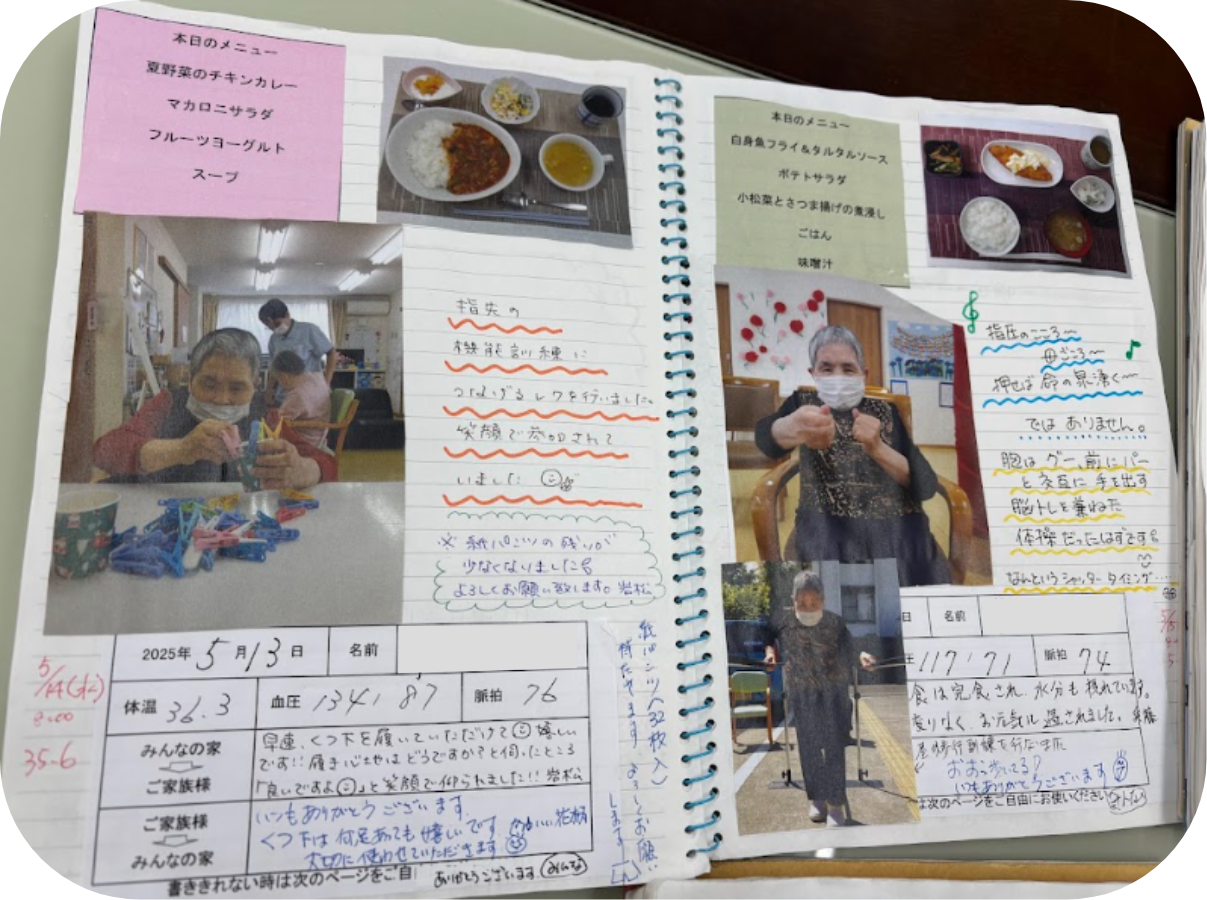 本日のメニュー
夏野菜のチキンカレー
マカロニサラダ
フルーツヨーグルト
スープ
指先の
機能訓練に
つなげるレクを行いました
笑顔で参加されて
いました
※紙パンツの残りが
少なくなりました
よろしくお願い致します。岩松
紙パンツ(32枚入)
持たせます よろしくお願い
します
5/14(水)
8:00
35.6
2025年 5月13日 名前
体温 36.3 血圧 134/87 脈拍 76
みんなの家
ご家族様
早速、くつ下を履いていただけて嬉しい
です!!履き心地はどうですか?と伺ったところ
「良いですよ」と笑顔で仰られました!!岩松
ご家族様
みんなの家
いつもありがとうございます。
くつ下は何足あっても嬉しいです。
大切に使わせていただきます
書ききれない時は次のページをご自
ありがとうございます
本日のメニュー
白身魚フライ&タルタルソース
ポテトサラダ
小松菜とさつま揚げの煮浸し
ごはん
味噌汁
指圧のこころ〜
母ごころ〜
押せば命の泉湧く〜
ではありません。
胸はグー、前にパー
と交互に手を出す
脳トレを兼ねた
体操だったはずです
なんというシャッタータイミング…
日 名前
圧 117/71 脈拍 74
食は完食され、水分も摂れています。
変りなく、お元気に過されました。
歩行訓練を行いました
おおっ歩いてる!
いつもありがとうございます
は次のページをご自由にお使いください